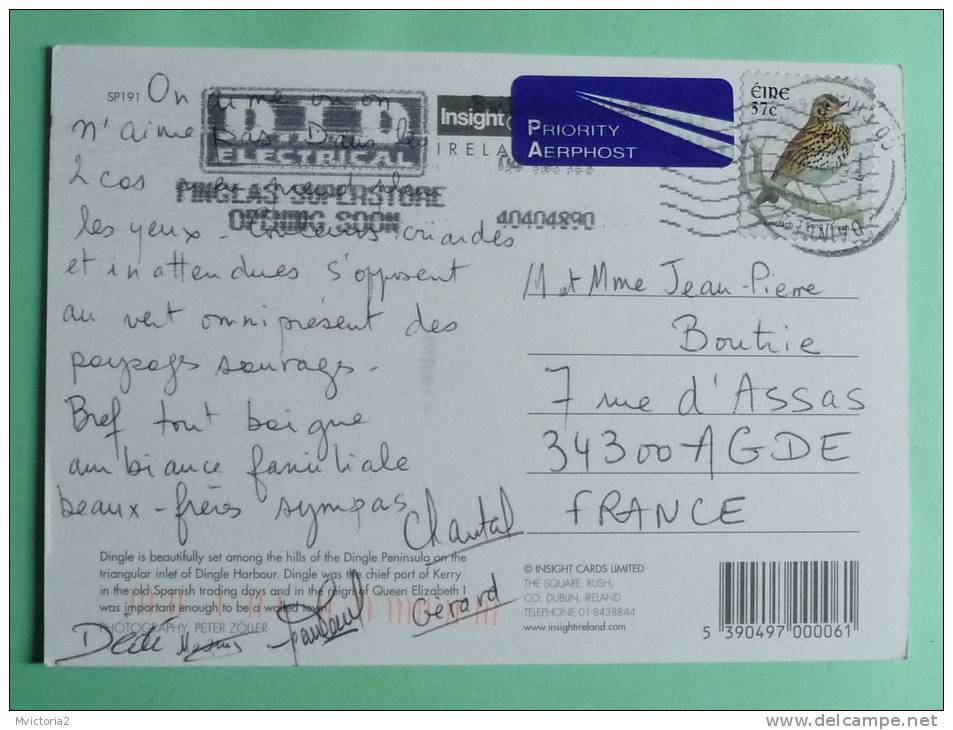 SP191
On aime ou on
n'aime pas. Dans les
2 cas
les yeux - Couleurs criardes
et inattendues s'opposent
au vert omniprésent des
paysages sauvages -
Bref tout baigne
ambiance familiale
beaux-frères sympas
Chantal
Gérard
Dédé
ELECTRICAL
FINGLAS SUPERSTORE
OPENING SOON
40404890
Insight
IRELA
PRIORITY
AERPHOST
ÉIRE
57c
Song Thrush
M et Mme Jean-Pierre
Boutrie
7 rue d'Assas
34300 AGDE
FRANCE
Dingle is beautifully set among the hills of the Dingle Peninsula on the
triangular inlet of Dingle Harbour. Dingle was the chief port of Kerry
in the old Spanish trading days and in the reign of Queen Elizabeth I
was important enough to be a walled town.
PHOTOGRAPHY: PETER ZÖLLER
© INSIGHT CARDS LIMITED
THE SQUARE, RUSH,
CO. DUBLIN, IRELAND
TELEPHONE 01-8438844
www.insightireland.com
5 390497 000061
Mvictoria2
www.delcampe.net